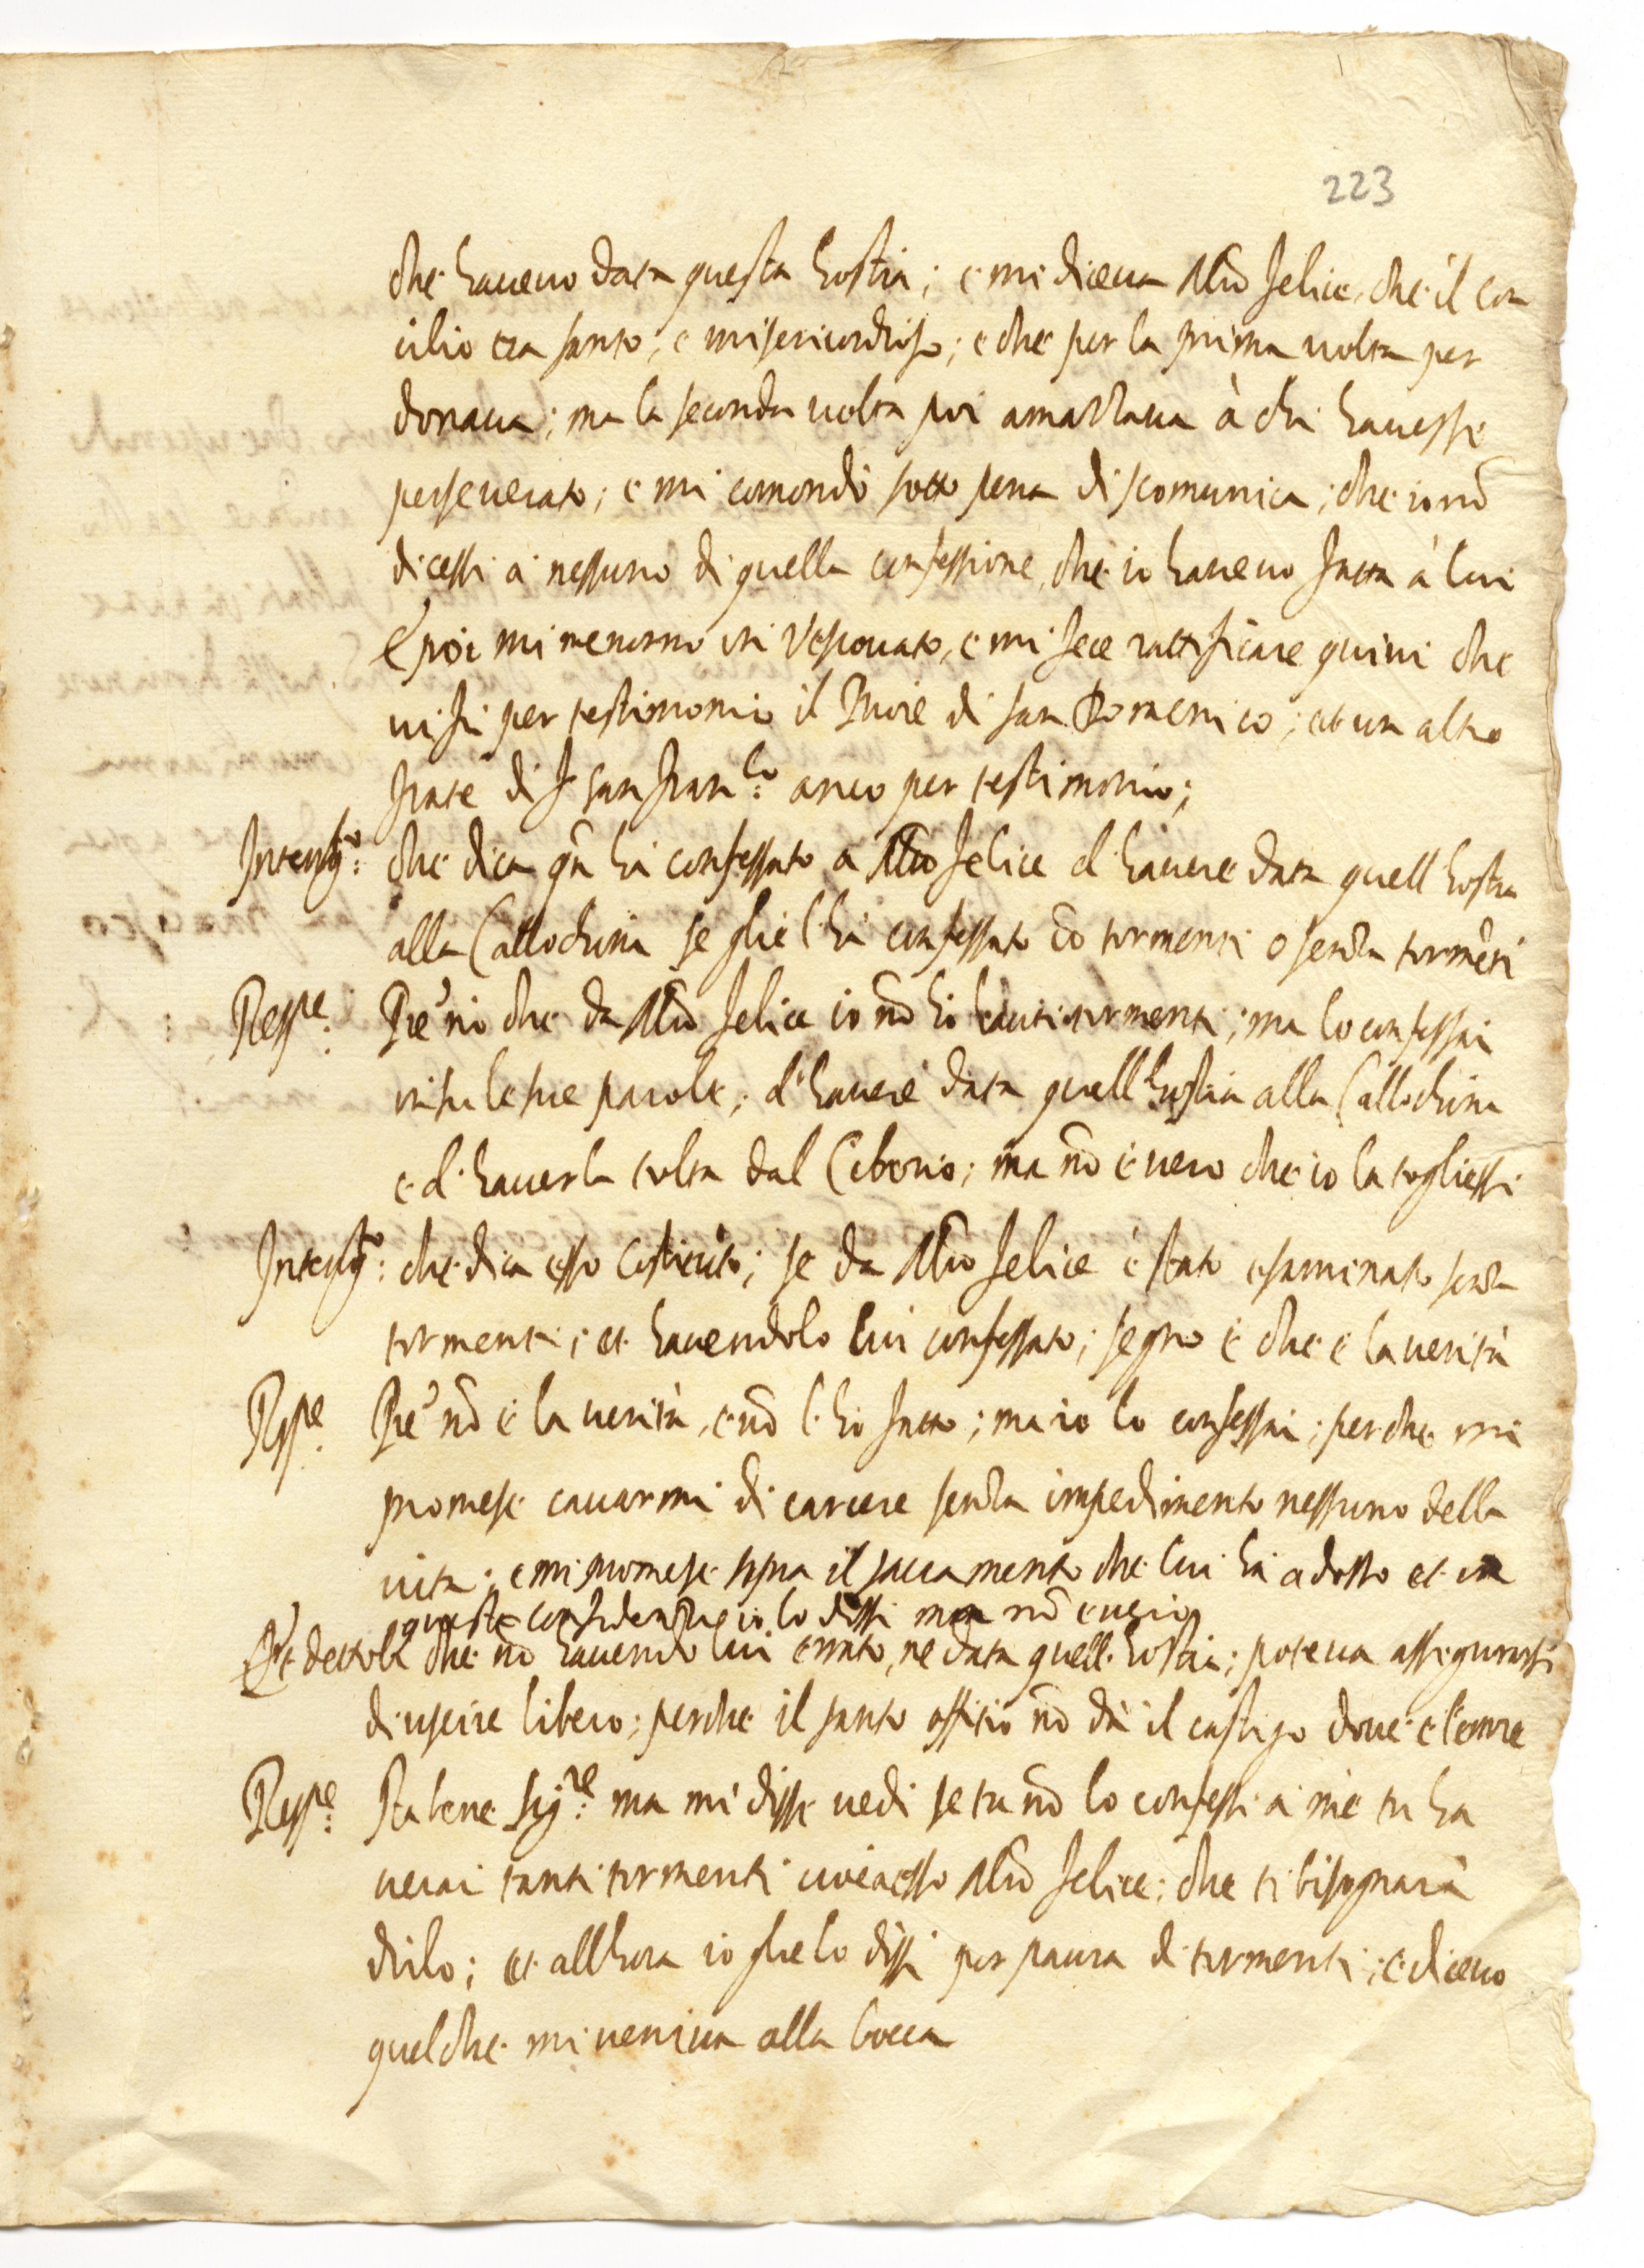 223
che haueuo data questa hostia; e mi diceua Mro felice, che il con
cilio era santo, e misericordioso; e che per la prima uolta per
donaua; ma la seconda uolta poi amazzaua à chi hauesse
perseuerato; e mi comandò sotto pena di scomunica, che io nõ
dicessi à nessuno di quella confessione, che io haueuo fatta à lui
E poi mi menorno in Vescouato, e mi fece rattificare quiui che
ui fù per testimonio il Priore di san Domenico; et un altro
frate di san Franco: anco per testimonio;
Interrgo: che dica qñ hà confessato a Mro felice d'hauere data quell hostia
alla Callochina se glie l'hà confessato cõ tormenti o senza tormẽti
Respe: Pre nò che da Mro felice io nõ hò hauuti tormenti; ma lo confessai
in su le sue parole, d'hauere data quell'hostia alla Callochina
e d'hauerla tolta dal Ciborio; ma nõ è uero che io la togliessi
Interrgo: che dica esso Costituto; se da Mro felice è stato esaminato senza
tormenti; et hauendolo lui confessato; segno è che è la uerità
Respe Pre nõ è la uerità, e nõ l'hò fatto; ma io lo confessai; perche mi
promese cauarmi di carcere senza impedimento nessuno della
uita; e mi promese sopra il sacramento che lui hà adosso et in
queste confidenze io lo dissi ma nõ è uero
Et dettoli che nõ hauendo lui errato, ne data quell'hostia; poteua assegurarsi
di uscire libero; perche il santo offitio nõ dà il castigo doue è l'errore
Respe: Sta bene Sigre: ma mi disse uedi se tu nõ lo confessi à mè tu ha
uerai tanti tormenti cioè esso Mro felice; che ti bisognarà
dirlo; et all'hora io glie lo dissi per paura di tormenti; e diceuo
quelche mi ueniua alla bocca